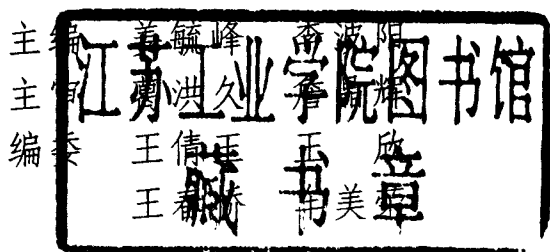 主编 姜毓峰 李波阳
主审 洪久 辉
编委 王倩 王欣
王春 美
江苏工业学院图书馆
藏书章